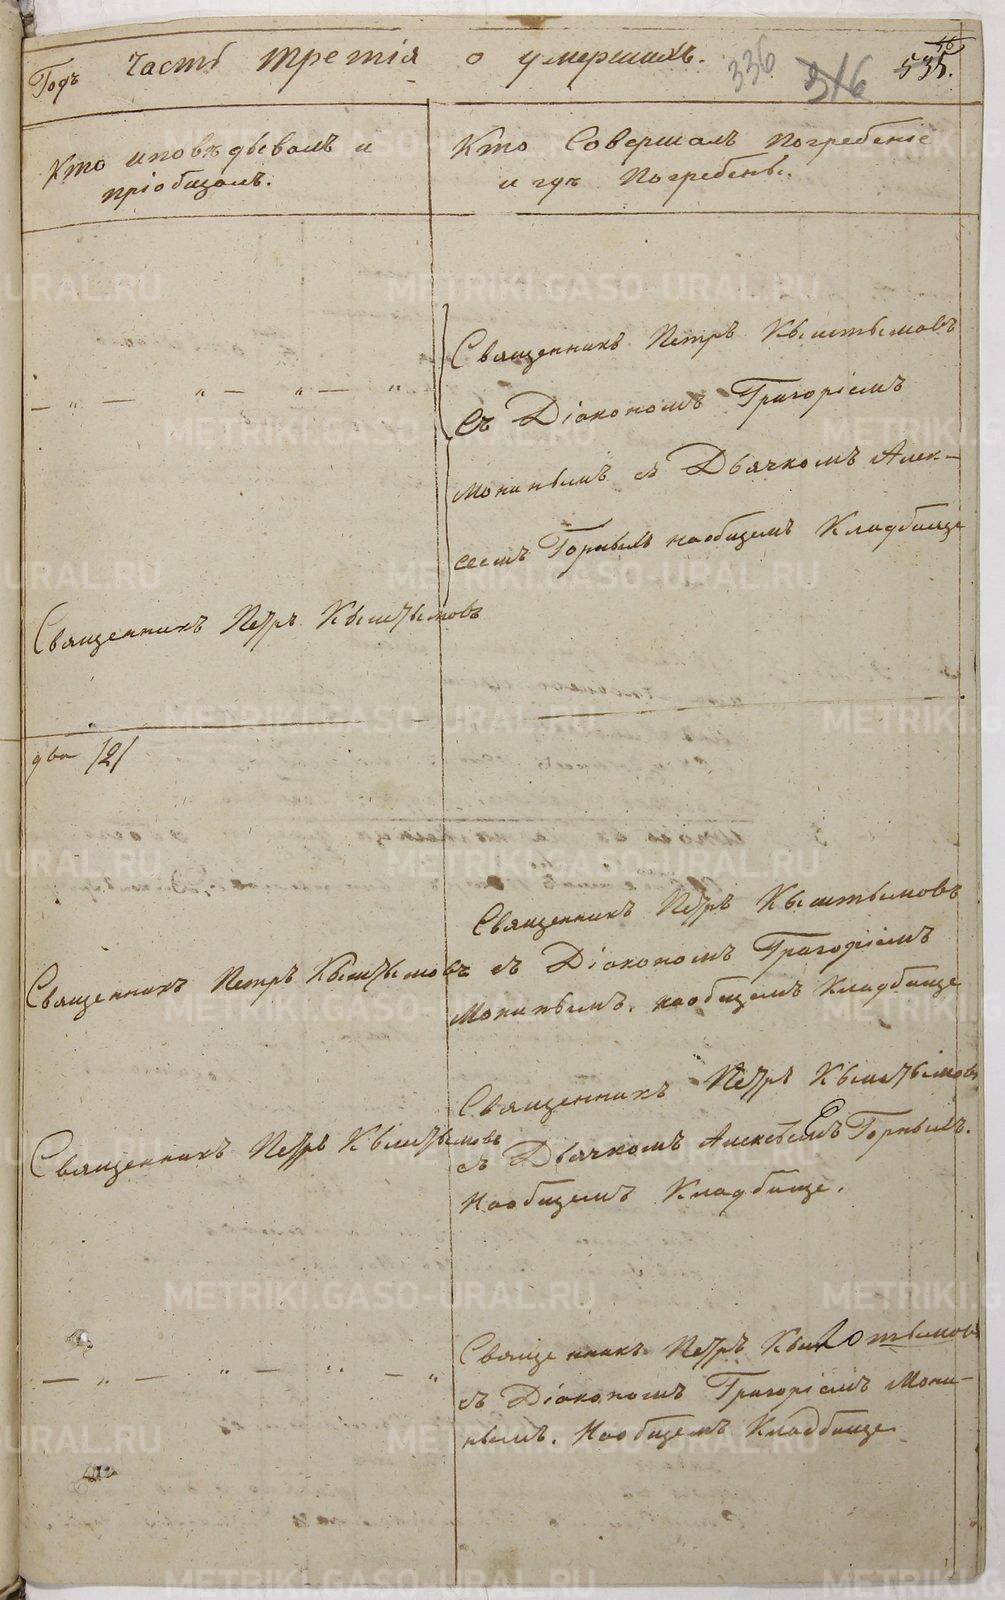 Годъ Часть третія о умершихъ. 336 316 535.
Кто исповѣдывалъ и
пріобщалъ.
Кто Совершалъ погребеніе
и гдѣ погребены.
Священникъ Петръ Кыштымовъ
Съ Діакономъ Григоріемъ
Мониным съ Дьячкомъ Алек-
сеемъ Горныхъ наобщемъ Кладбище
Священникъ Петръ Кыштымовъ
два /2/
Священникъ Петръ Кыштымовъ
съ Діакономъ Григоріемъ
Монинымъ. наобщемъ Кладбище
Священникъ Петръ Кыштымовъ
Священникъ Петръ Кыштымовъ
съ Дьячкомъ Алексѣемъ Горныхъ.
Наобщемъ Кладбище.
Священникъ Петръ Кыштымовъ
Священникъ Петръ Кыштымовъ
съ Діакономъ Григоріемъ Мони-
нымъ. Наобщемъ Кладбище
METRIKI.GASO-URAL.RU